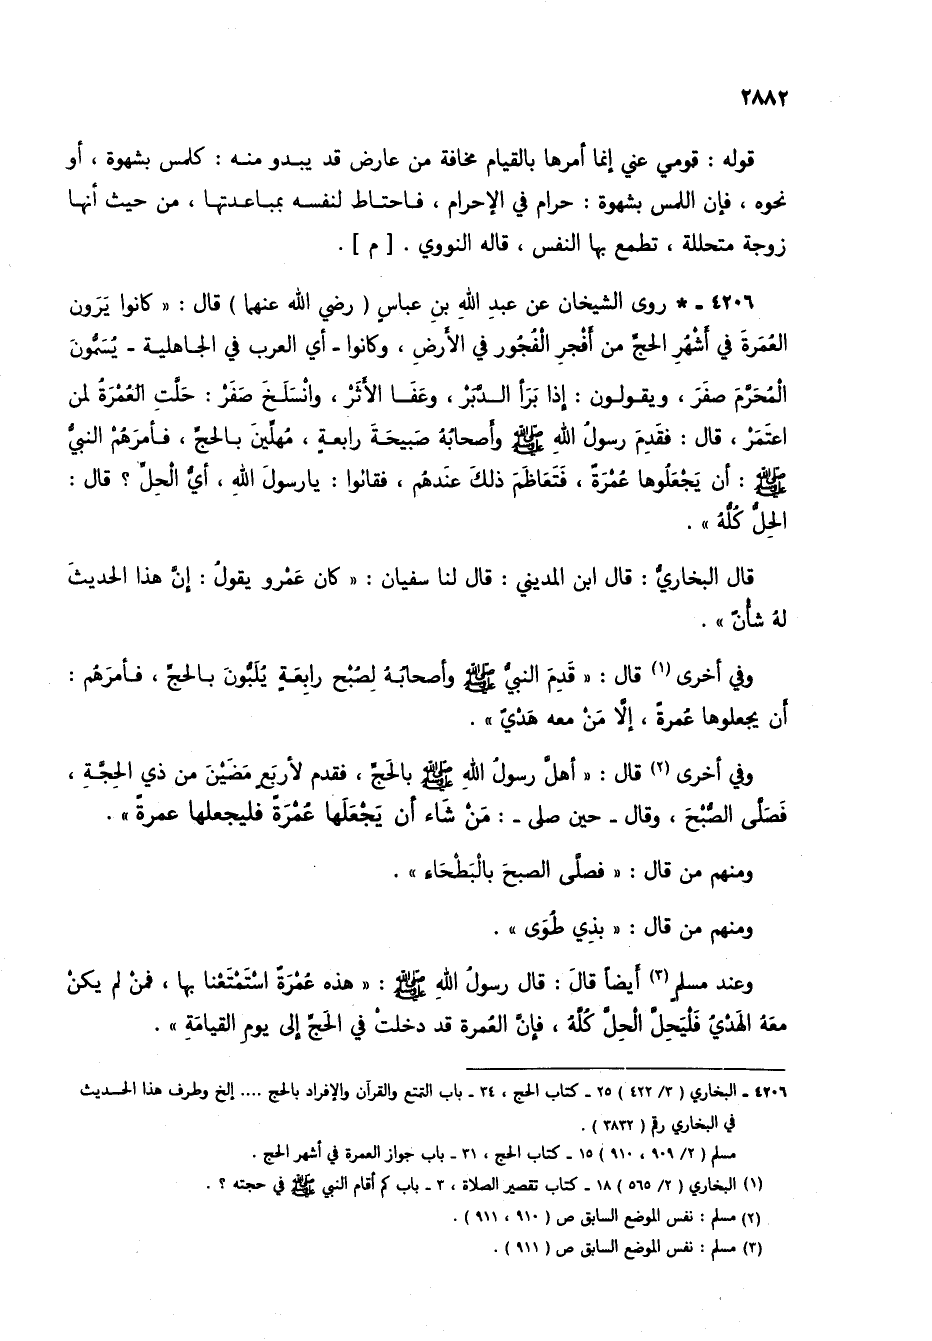 ٢٨٨٢
قوله : قومي عني إنما أمرها بالقيام مخافة من عارض قد يبدو منه : كلمس بشهوة ، أو
نحوه ، فإن اللمس بشهوة : حرام في الإحرام ، فاحتاط لنفسه بمباعدتها ، من حيث أنها
زوجة متحللة ، تطمع بها النفس ، قاله النووي . [ م ] .
٤٢٠٦ ـ * روى الشيخان عن عبدِ اللهِ بنِ عباسٍ ( رضي الله عنهما ) قال : « كانوا يَرَون
العُمَرةَ في أَشْهُرِ الحجِّ من أَفْجرِ الْفُجُور في الأَرضِ ، وكانوا ـ أي العرب في الجاهلية ـ يُسَمُّونَ
الْمُحَرَّمَ صفَرَ ، ويقولون : إذا بَرَأ الدَّبَرْ ، وعَفَا الأثَرْ ، وانْسَلَخَ صَفَرْ : حَلَّتِ العُمْرَةُ لمن
اعتَمَرْ ، قال : فقَدِمَ رسولُ اللهِ ﷺ وأصحابُهُ صَبيحَةَ رابعةٍ ، مُهلِّينَ بالحجِّ ، فأمرَهُمْ النبيُّ
ﷺ : أن يَجْعَلُوها عُمْرَةً ، فَتَعَاظَمَ ذلكَ عندَهُم ، فقالوا : يارسولَ اللهِ ، أيُّ الْحِلِّ ؟ قال :
الحِلُّ كُلُّهُ » .
قال البخاريُّ : قال ابن المديني : قال لنا سفيان : « كان عَمْرو يقولُ : إنَّ هذا الحديثَ
لهُ شأْنٌ » .
وفي أخرى (١) قال : « قَدِمَ النبيُّ ﷺ وأصحابُهُ لِصُبْحِ رابِعَةٍ يُلَبُّونَ بالحجِّ ، فأمرَهُم :
أن يجعلوها عُمرةً ، إلَّا مَنْ معه هَدْيٌ » .
وفي أخرى (٢) قال : « أهلَّ رسولُ اللهِ ﷺ بالحَجِّ ، فقدم لأربَعٍ مَضَيْنَ من ذي الحِجَّةِ ،
فَصَلَّى الصُّبْحَ ، وقال ـ حين صلى ـ : مَنْ شَاء أن يَجْعَلَها عُمْرَةً فليجعلها عمرةً » .
ومنهم من قال : « فصلَّى الصبحَ بالْبَطْحَاء » .
ومنهم من قال : « بذِي طُوَى » .
وعند مسلمٍ (٣) أيضاً قالَ : قال رسولُ اللهِ ﷺ : « هذه عُمْرَةٌ اسْتَمْتَعْنا بها ، فمنْ لم يكنْ
معَهُ الهَدْيُ فَلْيَحِلَّ الْحِلَّ كُلَّهُ ، فإنَّ العُمرةَ قد دخلتْ في الحَجِّ إلى يومِ القيامَةِ » .
٤٢٠٦ ـ البخاري ( ٣/ ٤٢٢ ) ٢٥ ـ كتاب الحج ، ٣٤ ـ باب التمتع والقرآن والإفراد بالحج .... إلخ وطرف هذا الحديث
في البخاري رقم ( ٣٨٣٢ ) .
مسلم ( ٢/ ٩٠٩ ، ٩١٠ ) ١٥ ـ كتاب الحج ، ٣١ ـ باب جواز العمرة في أشهر الحج .
(١) البخاري ( ٢/ ٥٦٥ ) ١٨ ـ كتاب تقصير الصلاة ، ٣ ـ باب كم أقام النبي ﷺ في حجته ؟ .
(٢) مسلم : نفس الموضع السابق ص ( ٩١٠ ، ٩١١ ) .
(٣) مسلم : نفس الموضع السابق ص ( ٩١١ ) .